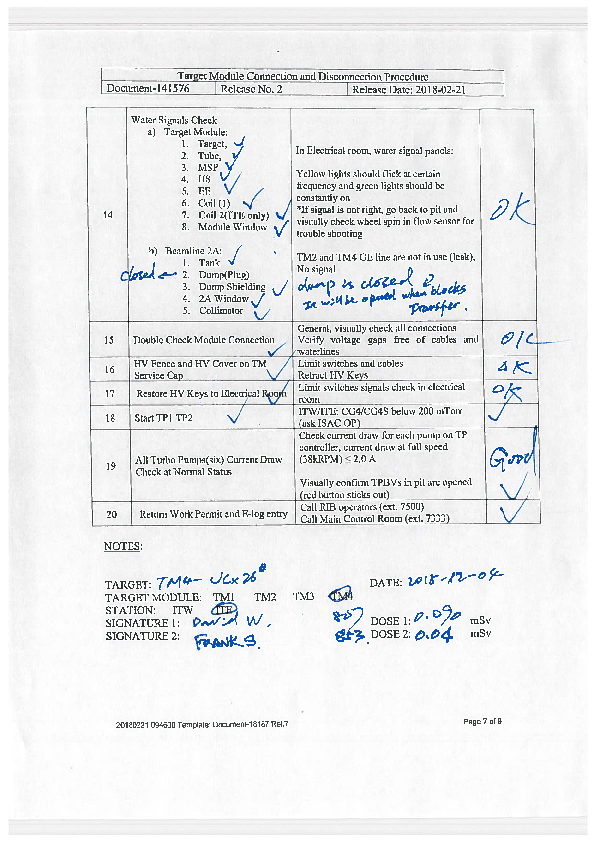 Target Module Connection and Disconnection Procedure
Document-141576 Release No. 2 Release Date: 2018-02-21
14
Water Signals Check
a) Target Module:
1. Target,
2. Tube,
3. MSP
4. HS
5. EE
6. Coil (1)
7. Coil 2(ITE only)
8. Module Window
b) Beamline 2A:
1. Tank
closed ← 2. Dump(Plug)
3. Dump Shielding
4. 2A Window
5. Collimator
In Electrical room, water signal panels:
Yellow lights should flick at certain
frequency and green lights should be
constantly on
*If signal is not right, go back to pit and
visually check wheel spin in flow sensor for
trouble shooting
TM2 and TM4 GE line are not in use (leak),
No signal
dump is closed
It will be opened when blocks
Transfer.
OK
15 Double Check Module Connection
General, visually check all connections
Verify voltage gaps free of cables and
waterlines
OK
16 HV Fence and HV Cover on TM
Service Cap
Limit switches and cables
Retract HV Keys
OK
17 Restore HV Keys to Electrical Room
Limit switches signals check in electrical
room
OK
18 Start TP1 TP2
ITW/ITE: CG4/CG4S below 200 mTorr
(ask ISAC OP)
19 All Turbo Pumps(six) Current Draw
Check at Normal Status
Check current draw for each pump on TP
controller, current draw at full speed
(38kRPM) ≤ 2.0 A
Visually confirm TPBVs in pit are opened
(red button sticks out)
Good
20 Return Work Permit and E-log entry
Call RIB operators (ext. 7500)
Call Main Control Room (ext. 7333)
NOTES:
TARGET: TM4- UCx26# DATE: 2018-12-04
TARGET MODULE: TM1 TM2 TM3 TM4
STATION: ITW ITE
SIGNATURE 1: David W. 857 DOSE 1: 0.090 mSv
SIGNATURE 2: FRANK S. 853 DOSE 2: 0.04 mSv
20180221 094600 Template: Document-18167 Rel.7 Page 7 of 9